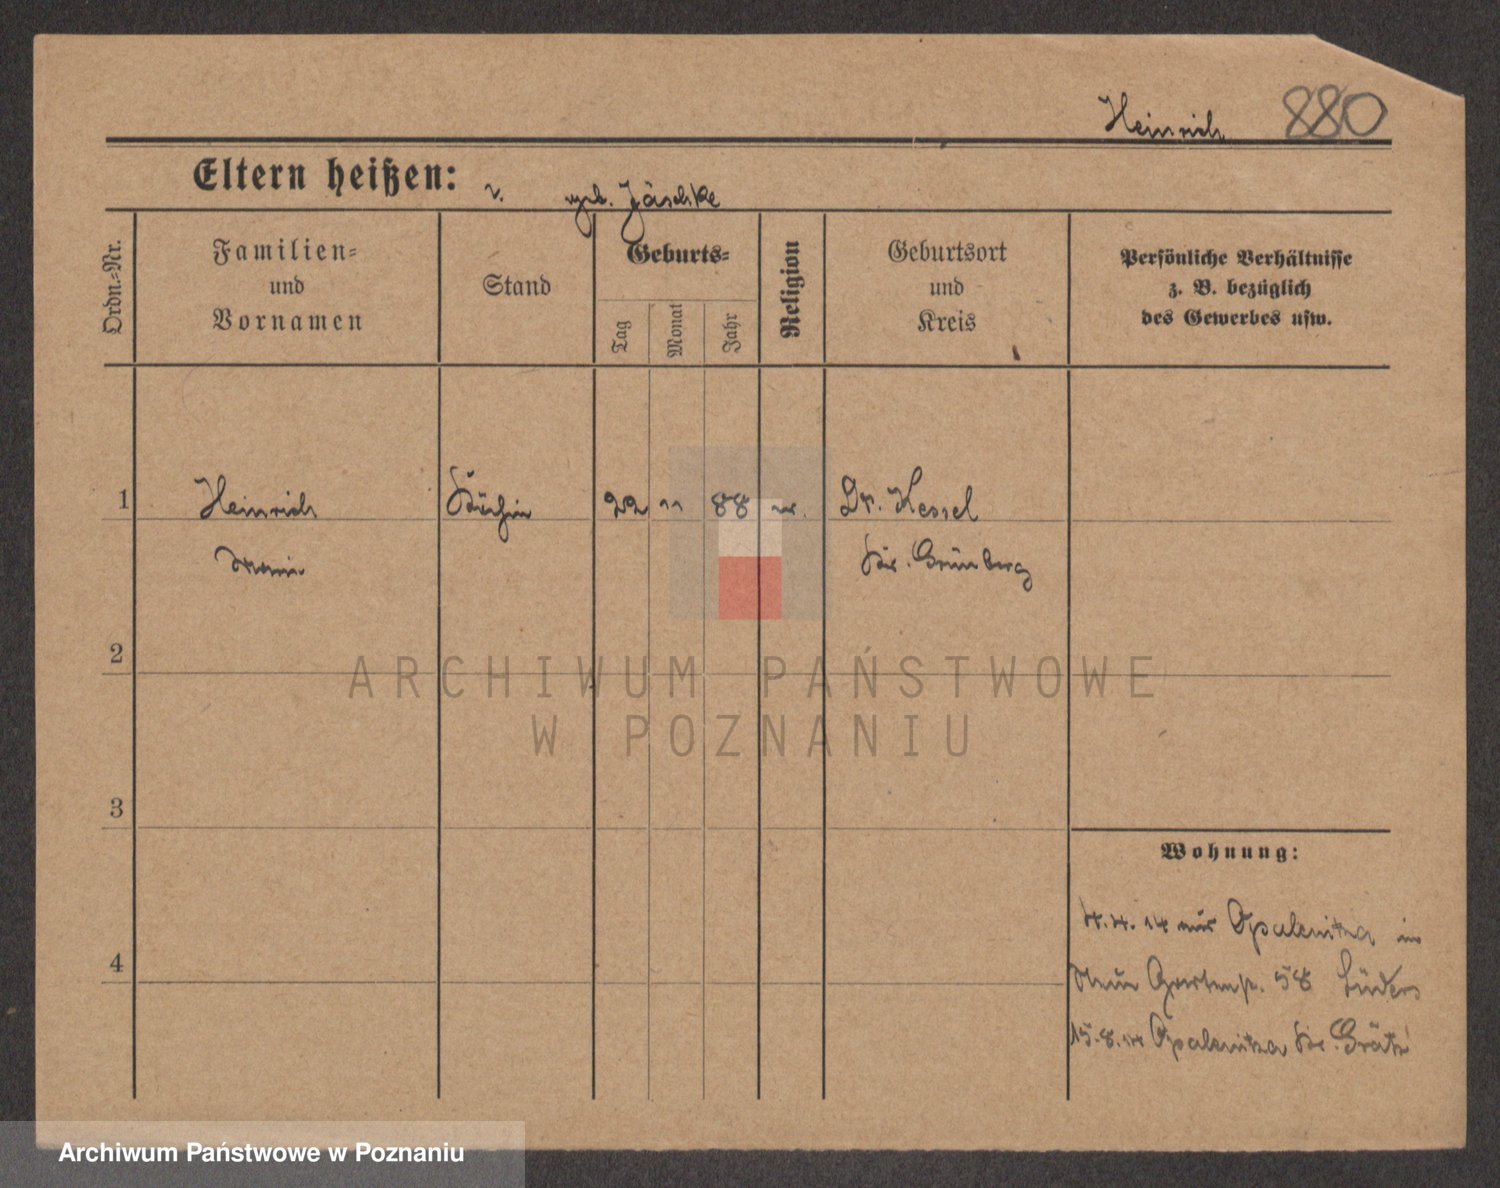 Heinrich 880
Eltern heißen: v. geb. Jäschke
Ordn.=Nr.
Familien=
und
Vornamen
Stand
Geburts=
Tag
Monat
Jahr
Religion
Geburtsort
und
Kreis
Persönliche Verhältnisse
z. B. bezüglich
des Gewerbes usw.
1 Heinrich Köchin 22 11 88 ev. Dt. Kessel
Kr. Grünberg
2
ARCHIWUM PAŃSTWOWE
W POZNANIU
3
Wohnung:
4.4.14 aus Opalenitza in
Neue Gartenstr. 58 Lüders
4
15.8.14 Opalenitza Kr. Grätz
Archiwum Państwowe w Poznaniu